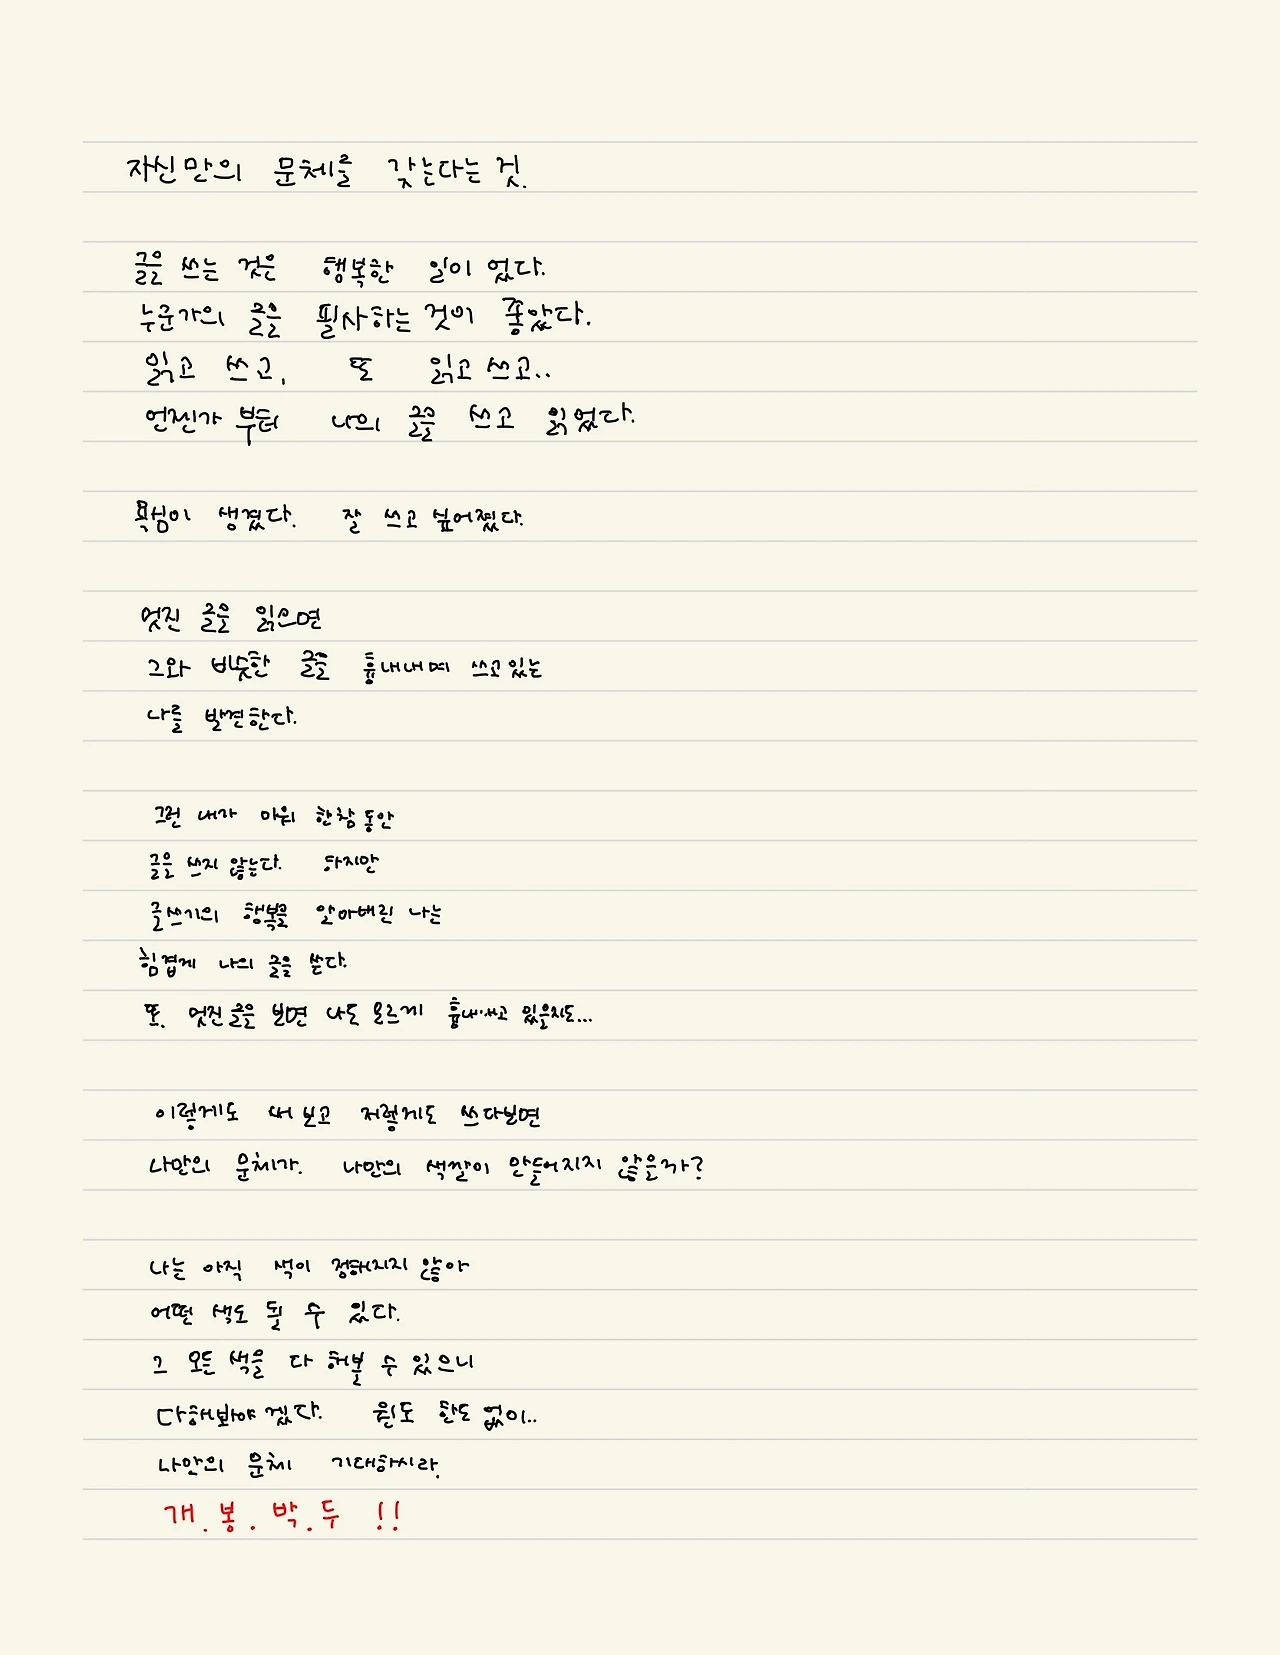 자신만의 문체를 갖는다는 것.
글을 쓰는 것은 행복한 일이 었다.
누군가의 글을 필사하는 것이 좋았다.
읽고 쓰고, 또 읽고 쓰고..
언젠가 부터 나의 글을 쓰고 읽었다.
욕심이 생겼다. 잘 쓰고 싶어졌다.
멋진 글을 읽으면
그와 비슷한 글을 흉내내며 쓰고있는
나를 발견한다.
그런 내가 미워 한참동안
글을 쓰지 않는다. 하지만
글쓰기의 행복을 알아버린 나는
힘겹게 나의 글을 쓴다.
또. 멋진글을 보면 나도 모르게 흉내내고 있을지도...
이렇게도 써 보고 저렇게도 쓰다보면
나만의 문체가. 나만의 색깔이 만들어지지 않을까?
나는 아직 색이 정해지지 않아
어떤 색도 될 수 있다.
그 모든 색을 다 해볼 수 있으니
다해봐야 겠다. 원도 한도 없이..
나만의 문체 기대하시라.
개.봉.박.두 !!